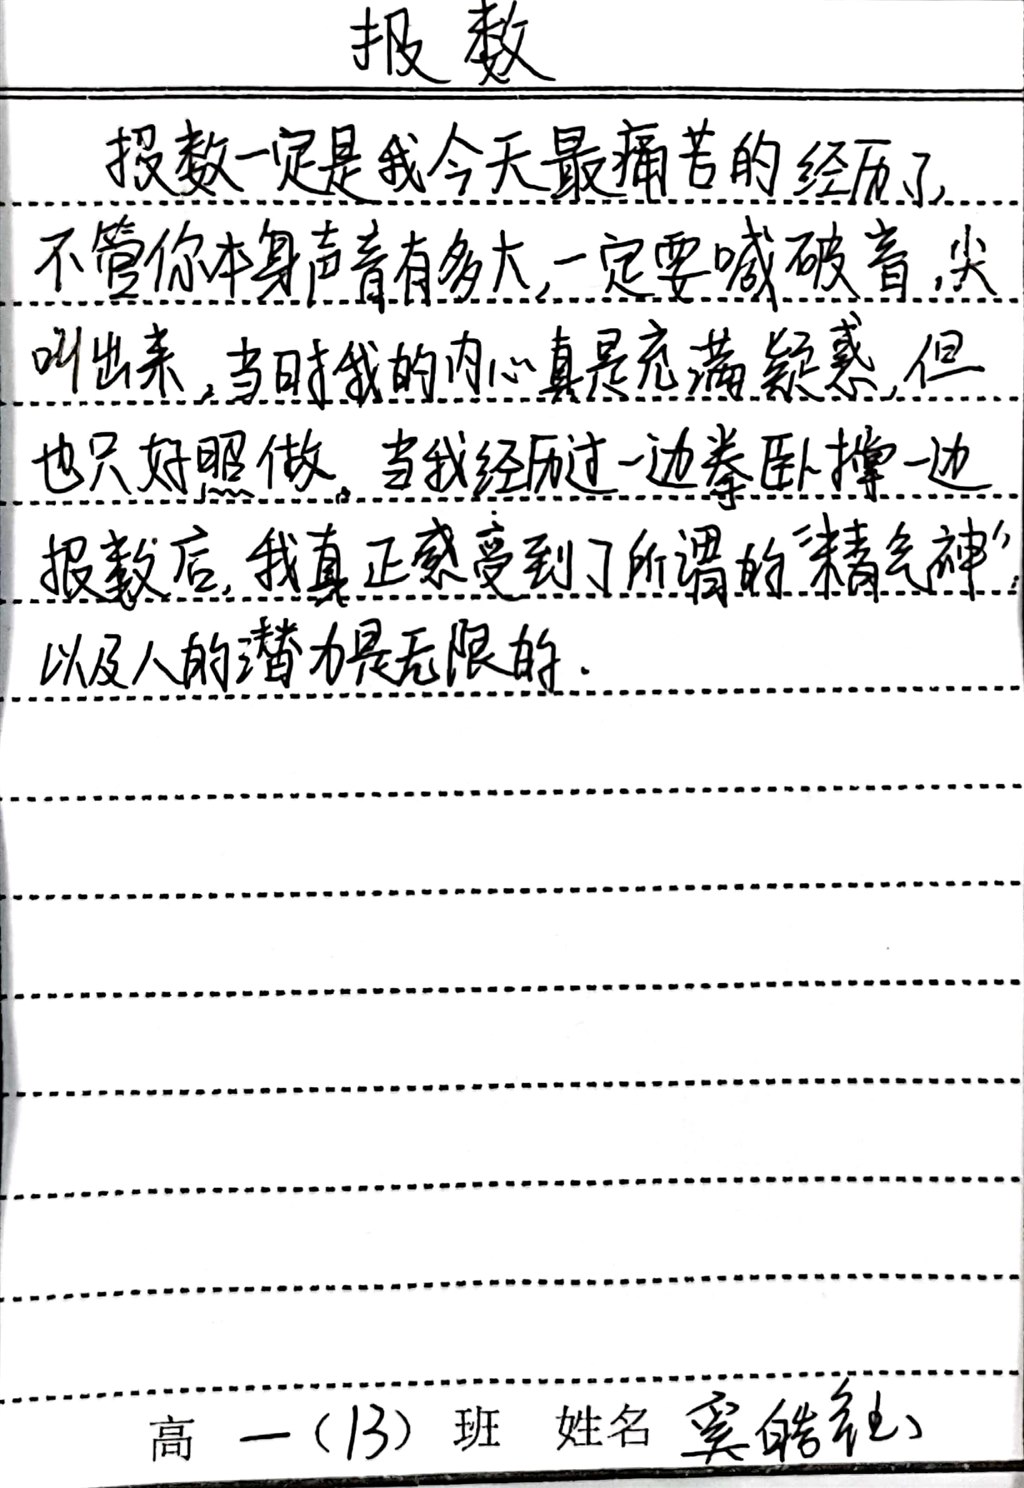 报数
报数一定是我今天最痛苦的经历了，
不管你本身声音有多大，一定要喊破音，尖
叫出来，当时我的内心真是充满疑惑，但
也只好照做。当我经历过一边拳卧撑一边
报数后，我真正感受到了所谓的“精气神”
以及人的潜力是无限的．
高 一（13）班 姓名 奚皓